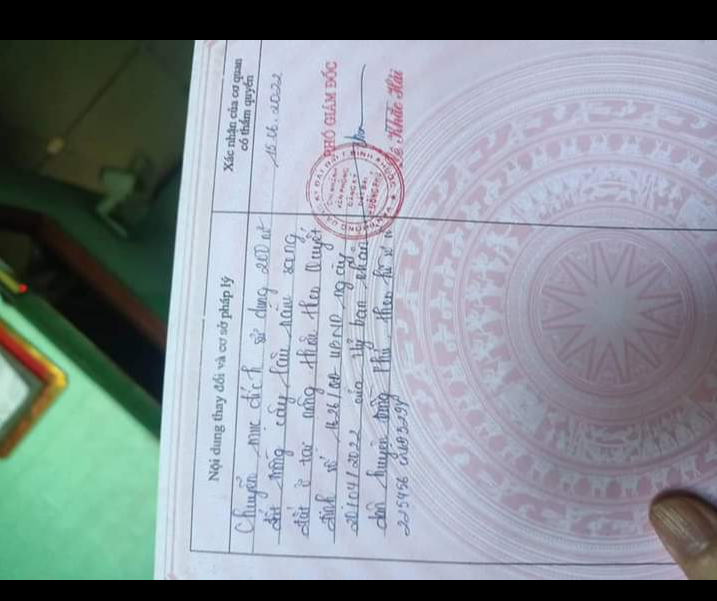 Nội dung thay đổi và cơ sở pháp lý
Xác nhận của cơ quan
có thẩm quyền
Chuyển mục đích sử dụng 200 m²
đất trồng cây lâu năm sang
đất ở tại nông thôn theo Quyết
định số 1626/QĐ-UBND ngày
20/04/2022 của Ủy ban nhân
dân huyện Đồng Phú, theo hồ sơ
225456
15.06.2022
PHÓ GIÁM ĐỐC
Lê Khắc Hải